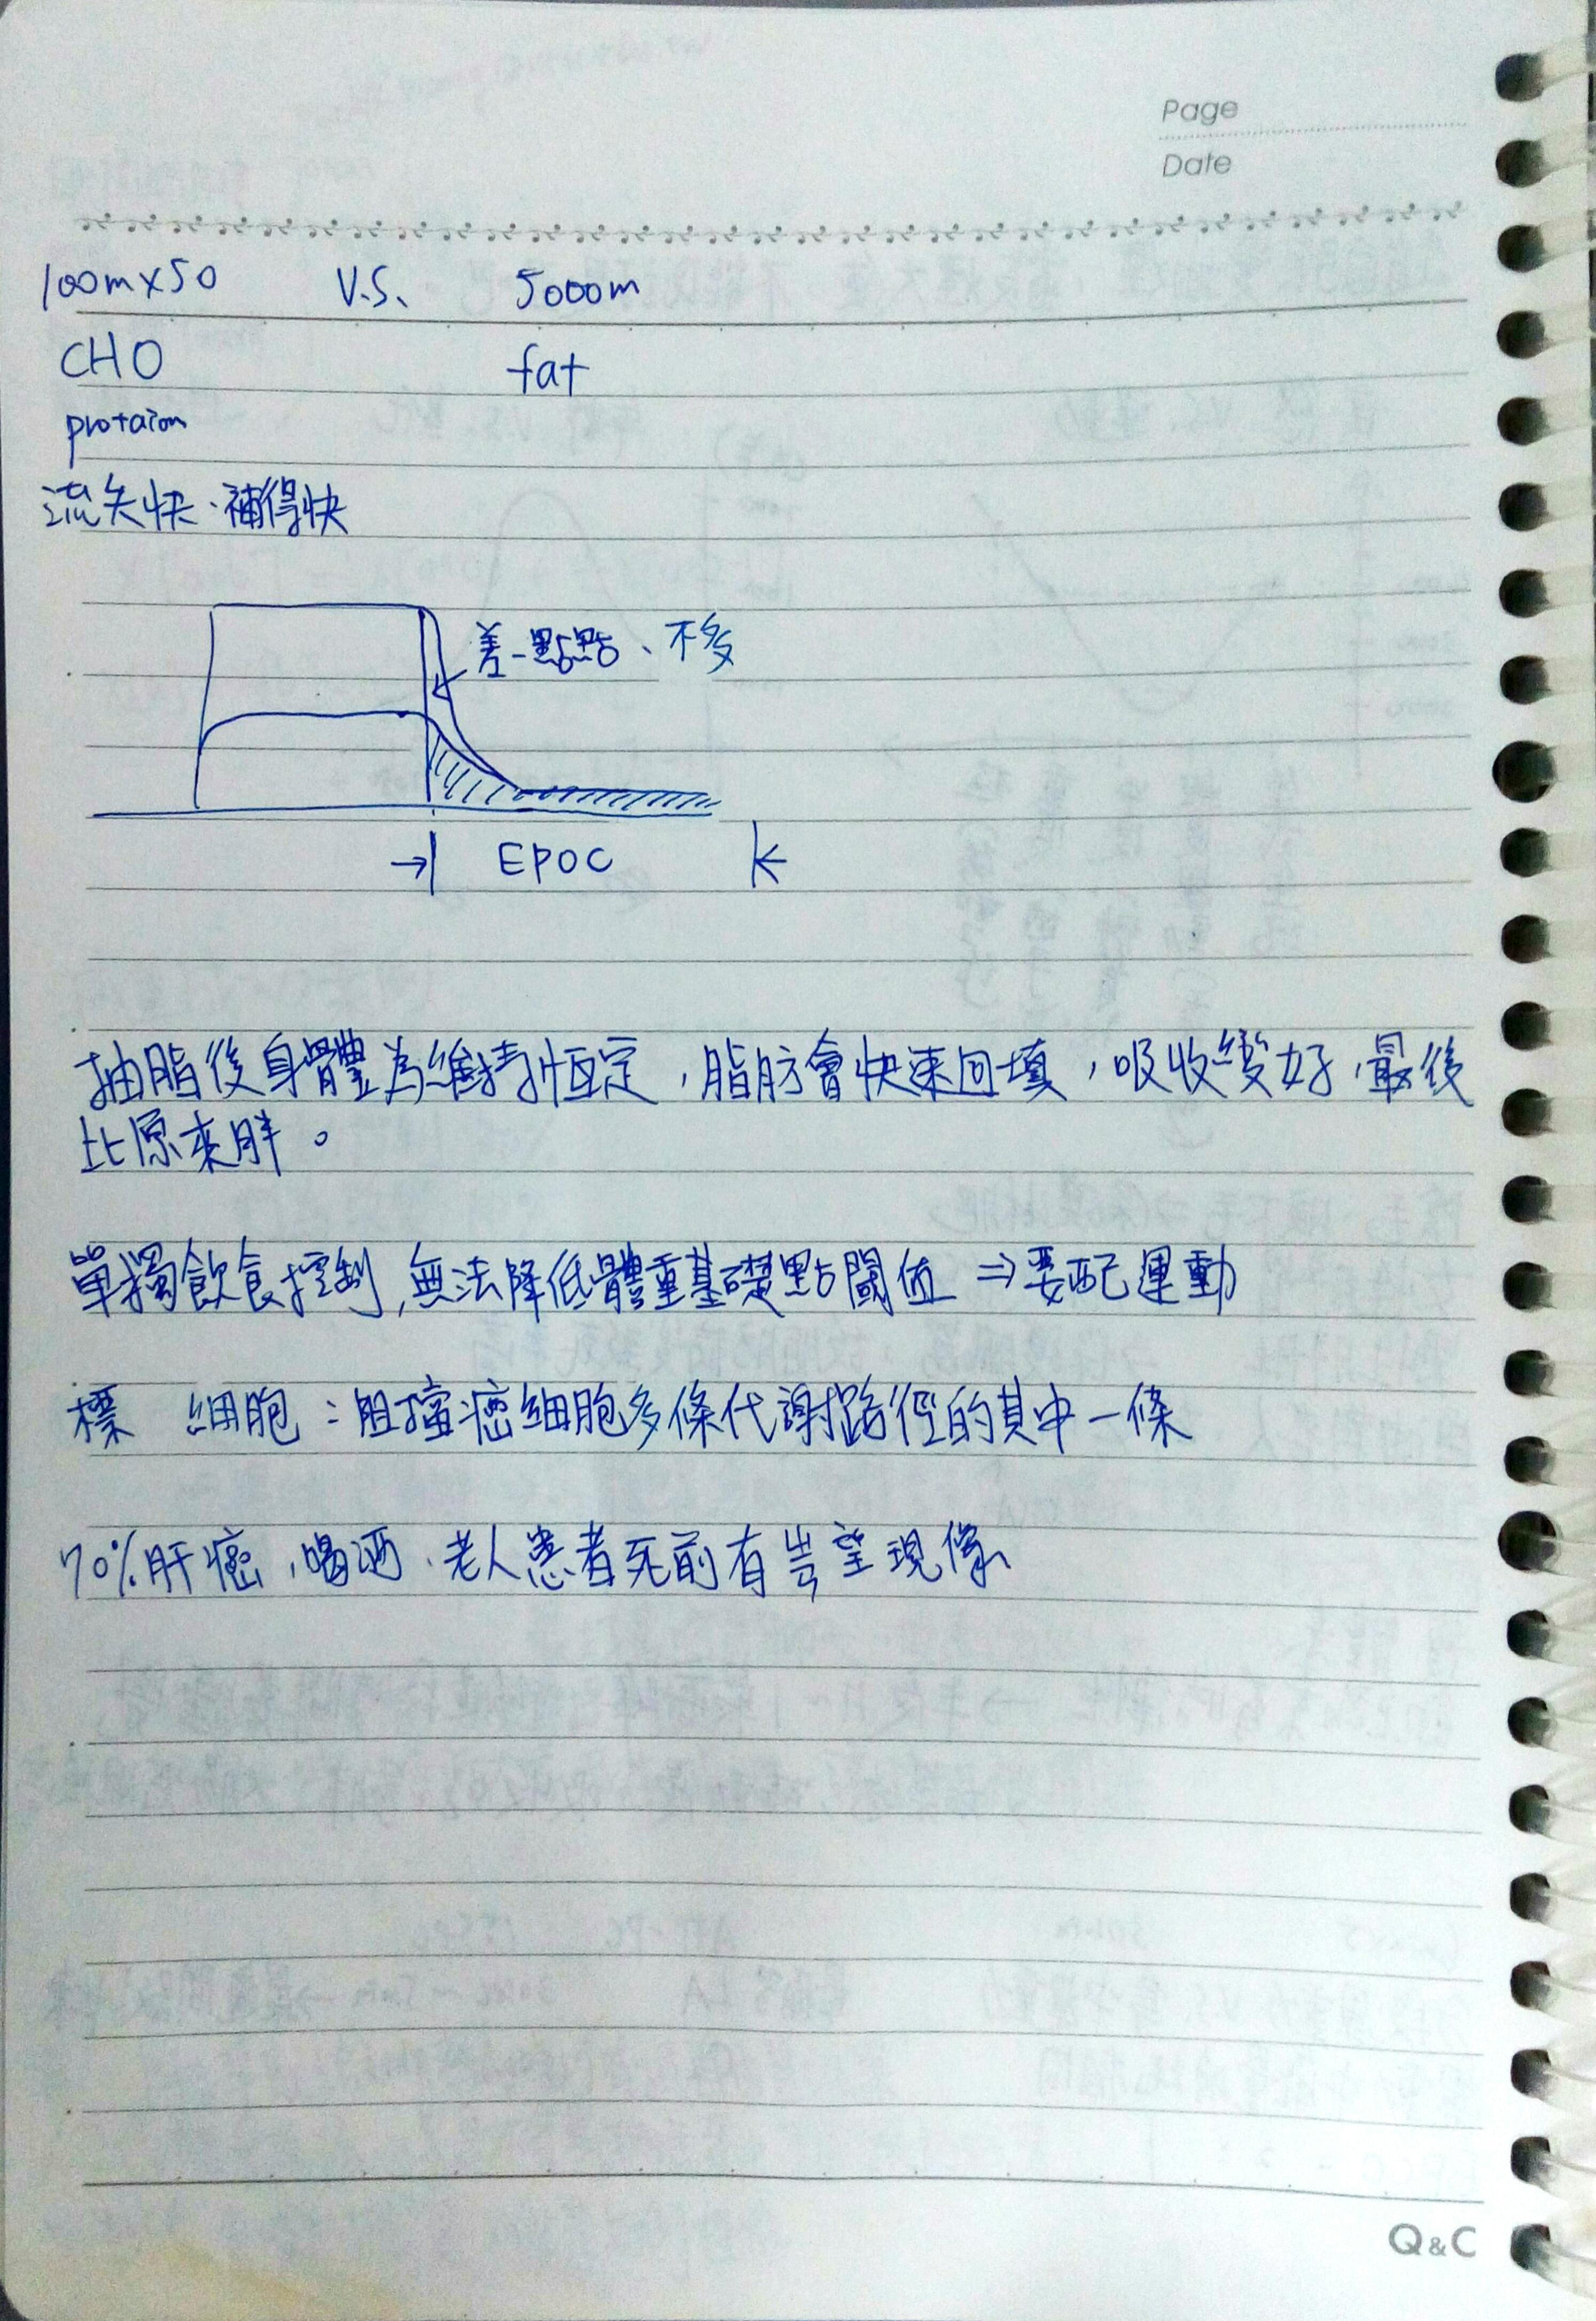 Page
Date
100m×50 V.S. 5000m
CHO fat
protaion
流失快、補得快
差一點點、不多
EPOC
抽脂後身體為維持恆定，脂肪會快速回填，吸收變好，最後
比原來胖。
單獨飲食控制，無法降低體重基礎點閾值 ⇒ 要配運動
標 細胞：阻擋癌細胞多條代謝路徑的其中一條
70%肝癌、喝酒、老人患者死前有 望現像
Q&C